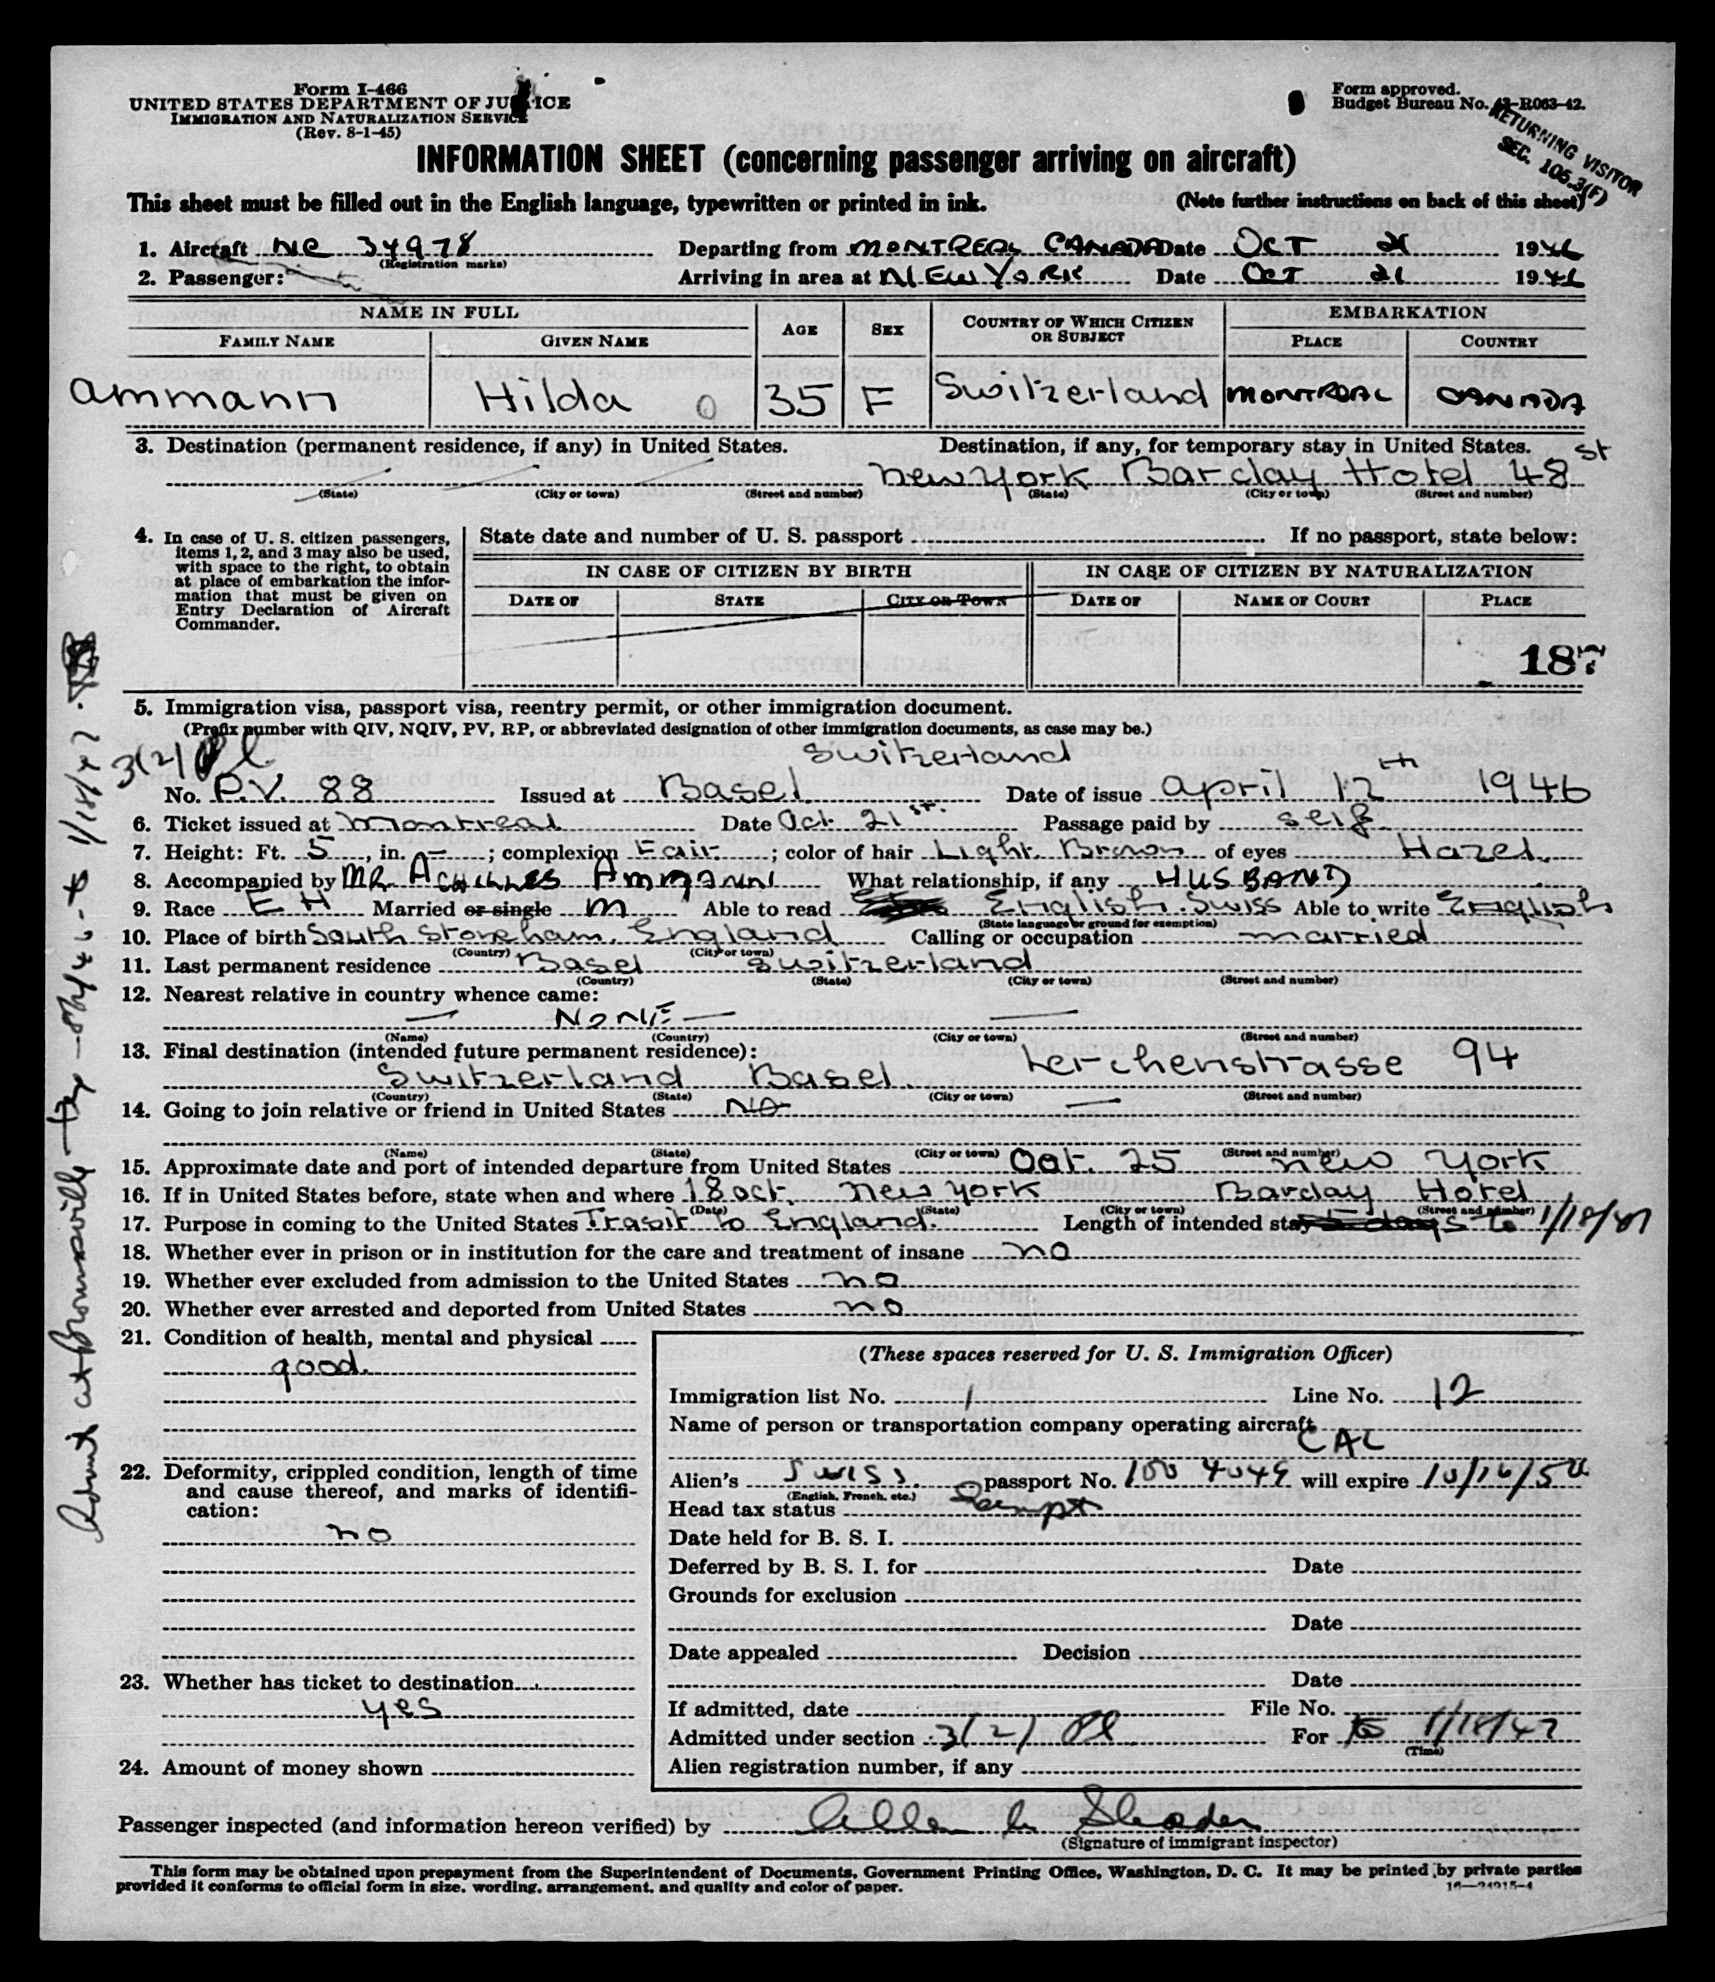 Form I-466
UNITED STATES DEPARTMENT OF JUSTICE
IMMIGRATION AND NATURALIZATION SERVICE
(Rev. 8-1-45)
Form approved.
Budget Bureau No. 43-R063-42.
RETURNING VISITOR
SEC. 105.3(F)
INFORMATION SHEET (concerning passenger arriving on aircraft)
This sheet must be filled out in the English language, typewritten or printed in ink. (Note further instructions on back of this sheet)
1. Aircraft NC 34978 Departing from MONTREAL CANADA Date OCT 21 1946
(Registration marks)
2. Passenger: Arriving in area at NEW YORK Date OCT 21 1946
NAME IN FULL AGE SEX COUNTRY OF WHICH CITIZEN OR SUBJECT EMBARKATION
FAMILY NAME GIVEN NAME PLACE COUNTRY
ammann Hilda 0 35 F Switzerland MONTREAL CANADA
3. Destination (permanent residence, if any) in United States. Destination, if any, for temporary stay in United States.
New York Barclay Hotel 48 st
(State) (City or town) (Street and number) (State) (City or town) (Street and number)
4. In case of U. S. citizen passengers, items 1, 2, and 3 may also be used, with space to the right, to obtain at place of embarkation the information that must be given on Entry Declaration of Aircraft Commander.
State date and number of U. S. passport If no passport, state below:
IN CASE OF CITIZEN BY BIRTH IN CASE OF CITIZEN BY NATURALIZATION
DATE OF STATE CITY OR TOWN DATE OF NAME OF COURT PLACE
187
5. Immigration visa, passport visa, reentry permit, or other immigration document.
(Prefix number with QIV, NQIV, PV, RP, or abbreviated designation of other immigration documents, as case may be.)
3(2) Pl Switzerland
No. P.V. 88 Issued at Basel Date of issue april 12th 1946
6. Ticket issued at Montreal Date Oct. 21st. Passage paid by self
7. Height: Ft. 5, in. 4-; complexion Fair; color of hair Light Brown of eyes Hazel.
8. Accompanied by MR ACHILLES AMMANN What relationship, if any HUSBAND
9. Race EH Married or single M Able to read English. Swiss Able to write English
(State language or ground for exemption)
10. Place of birth South Stoneham, England Calling or occupation married
(Country) (City or town)
11. Last permanent residence Basel Switzerland
(Country) (State) (City or town) (Street and number)
12. Nearest relative in country whence came:
— NONE — —
(Name) (Country) (City or town) (Street and number)
13. Final destination (intended future permanent residence):
Switzerland Basel. Lerchenstrasse 94
(Country) (State) (City or town) (Street and number)
14. Going to join relative or friend in United States No —
(Name) (State) (City or town) (Street and number)
15. Approximate date and port of intended departure from United States Oct. 25 New York
16. If in United States before, state when and where 18 oct. New York Barclay Hotel
(Date) (State) (City or town) (Street and number)
17. Purpose in coming to the United States Trasit to England. Length of intended stay 5 days to 1/18/47
18. Whether ever in prison or in institution for the care and treatment of insane no
19. Whether ever excluded from admission to the United States no
20. Whether ever arrested and deported from United States no
21. Condition of health, mental and physical
good.
22. Deformity, crippled condition, length of time and cause thereof, and marks of identification:
no
23. Whether has ticket to destination
yes
24. Amount of money shown
(These spaces reserved for U. S. Immigration Officer)
Immigration list No. 1 Line No. 12
Name of person or transportation company operating aircraft
CAC
Alien's Swiss passport No. 100 4049 will expire 10/16/50
(English, French, etc.)
Head tax status Exempt
Date held for B. S. I.
Deferred by B. S. I. for Date
Grounds for exclusion
Date
Date appealed Decision
Date
If admitted, date File No.
Admitted under section 3(2) Pl For to 1/18/47
(Time)
Alien registration number, if any
Passenger inspected (and information hereon verified) by
(Signature of immigrant inspector)
This form may be obtained upon prepayment from the Superintendent of Documents, Government Printing Office, Washington, D. C. It may be printed by private parties
provided it conforms to official form in size, wording, arrangement, and quality and color of paper.
16—24915-4
Admit at Brownsville to 1/18/47